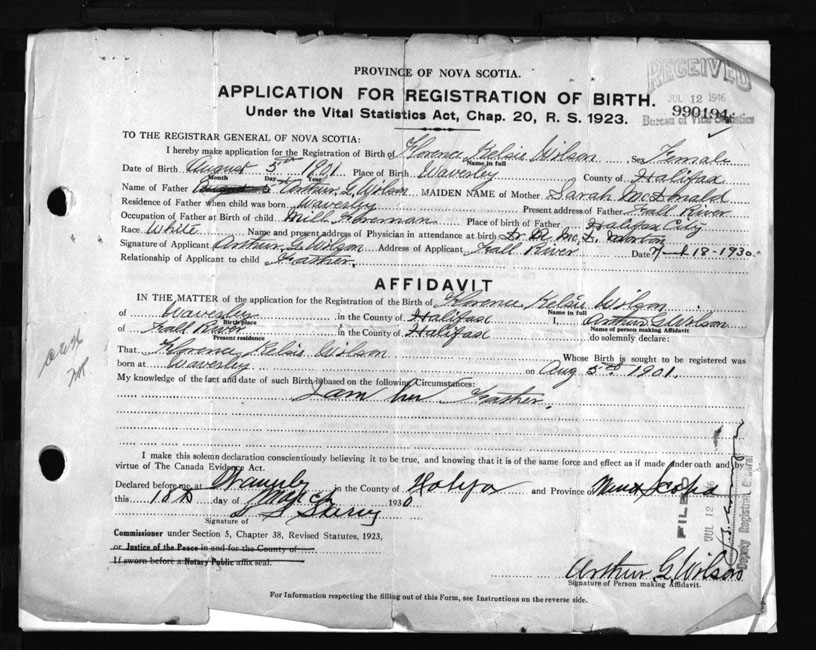 PROVINCE OF NOVA SCOTIA.
APPLICATION FOR REGISTRATION OF BIRTH.
Under the Vital Statistics Act, Chap. 20, R. S. 1923.
RECEIVED
JUL 12 1946
990194
Bureau of Vital Statistics
TO THE REGISTRAR GENERAL OF NOVA SCOTIA:
I hereby make application for the Registration of Birth of Florence Kelsie Wilson Sex Female
Name in full
Date of Birth August 5th 1901 Place of Birth Waverley County of Halifax
Month Day Year
Name of Father Arthur G. Wilson MAIDEN NAME of Mother Sarah McDonald
Residence of Father when child was born Waverley Present address of Father Fall River
Occupation of Father at Birth of child Mill Foreman Place of birth of Father Halifax City
Race White Name and present address of Physician in attendance at birth Dr. Morton
Signature of Applicant Arthur G Wilson Address of Applicant Fall River Date 18-1930
Relationship of Applicant to child Father.
AFFIDAVIT
IN THE MATTER of the application for the Registration of the Birth of Florence Kelsie Wilson
Name in full
of Waverley in the County of Halifax I, Arthur G Wilson
Birthplace Name of person making Affidavit
of Fall River in the County of Halifax do solemnly declare:
Present residence
That Florence Kelsie Wilson Whose Birth is sought to be registered was
born at Waverley on Aug 5th 1901.
My knowledge of the fact and date of such Birth is based on the following Circumstances:
I am her Father.
I make this solemn declaration conscientiously believing it to be true, and knowing that it is of the same force and effect as if made under oath and by
virtue of The Canada Evidence Act.
Declared before me at Waverley in the County of Halifax and Province of Nova Scotia
this 18th day of March 1930
Signature of
Commissioner under Section 5, Chapter 38, Revised Statutes, 1923,
or Justice of the Peace in and for the County of
If sworn before a Notary Public affix seal.
FILED
JUL 12 1946
Deputy Registrar General
Arthur G Wilson
Signature of Person making Affidavit.
For Information respecting the filling out of this Form, see Instructions on the reverse side.